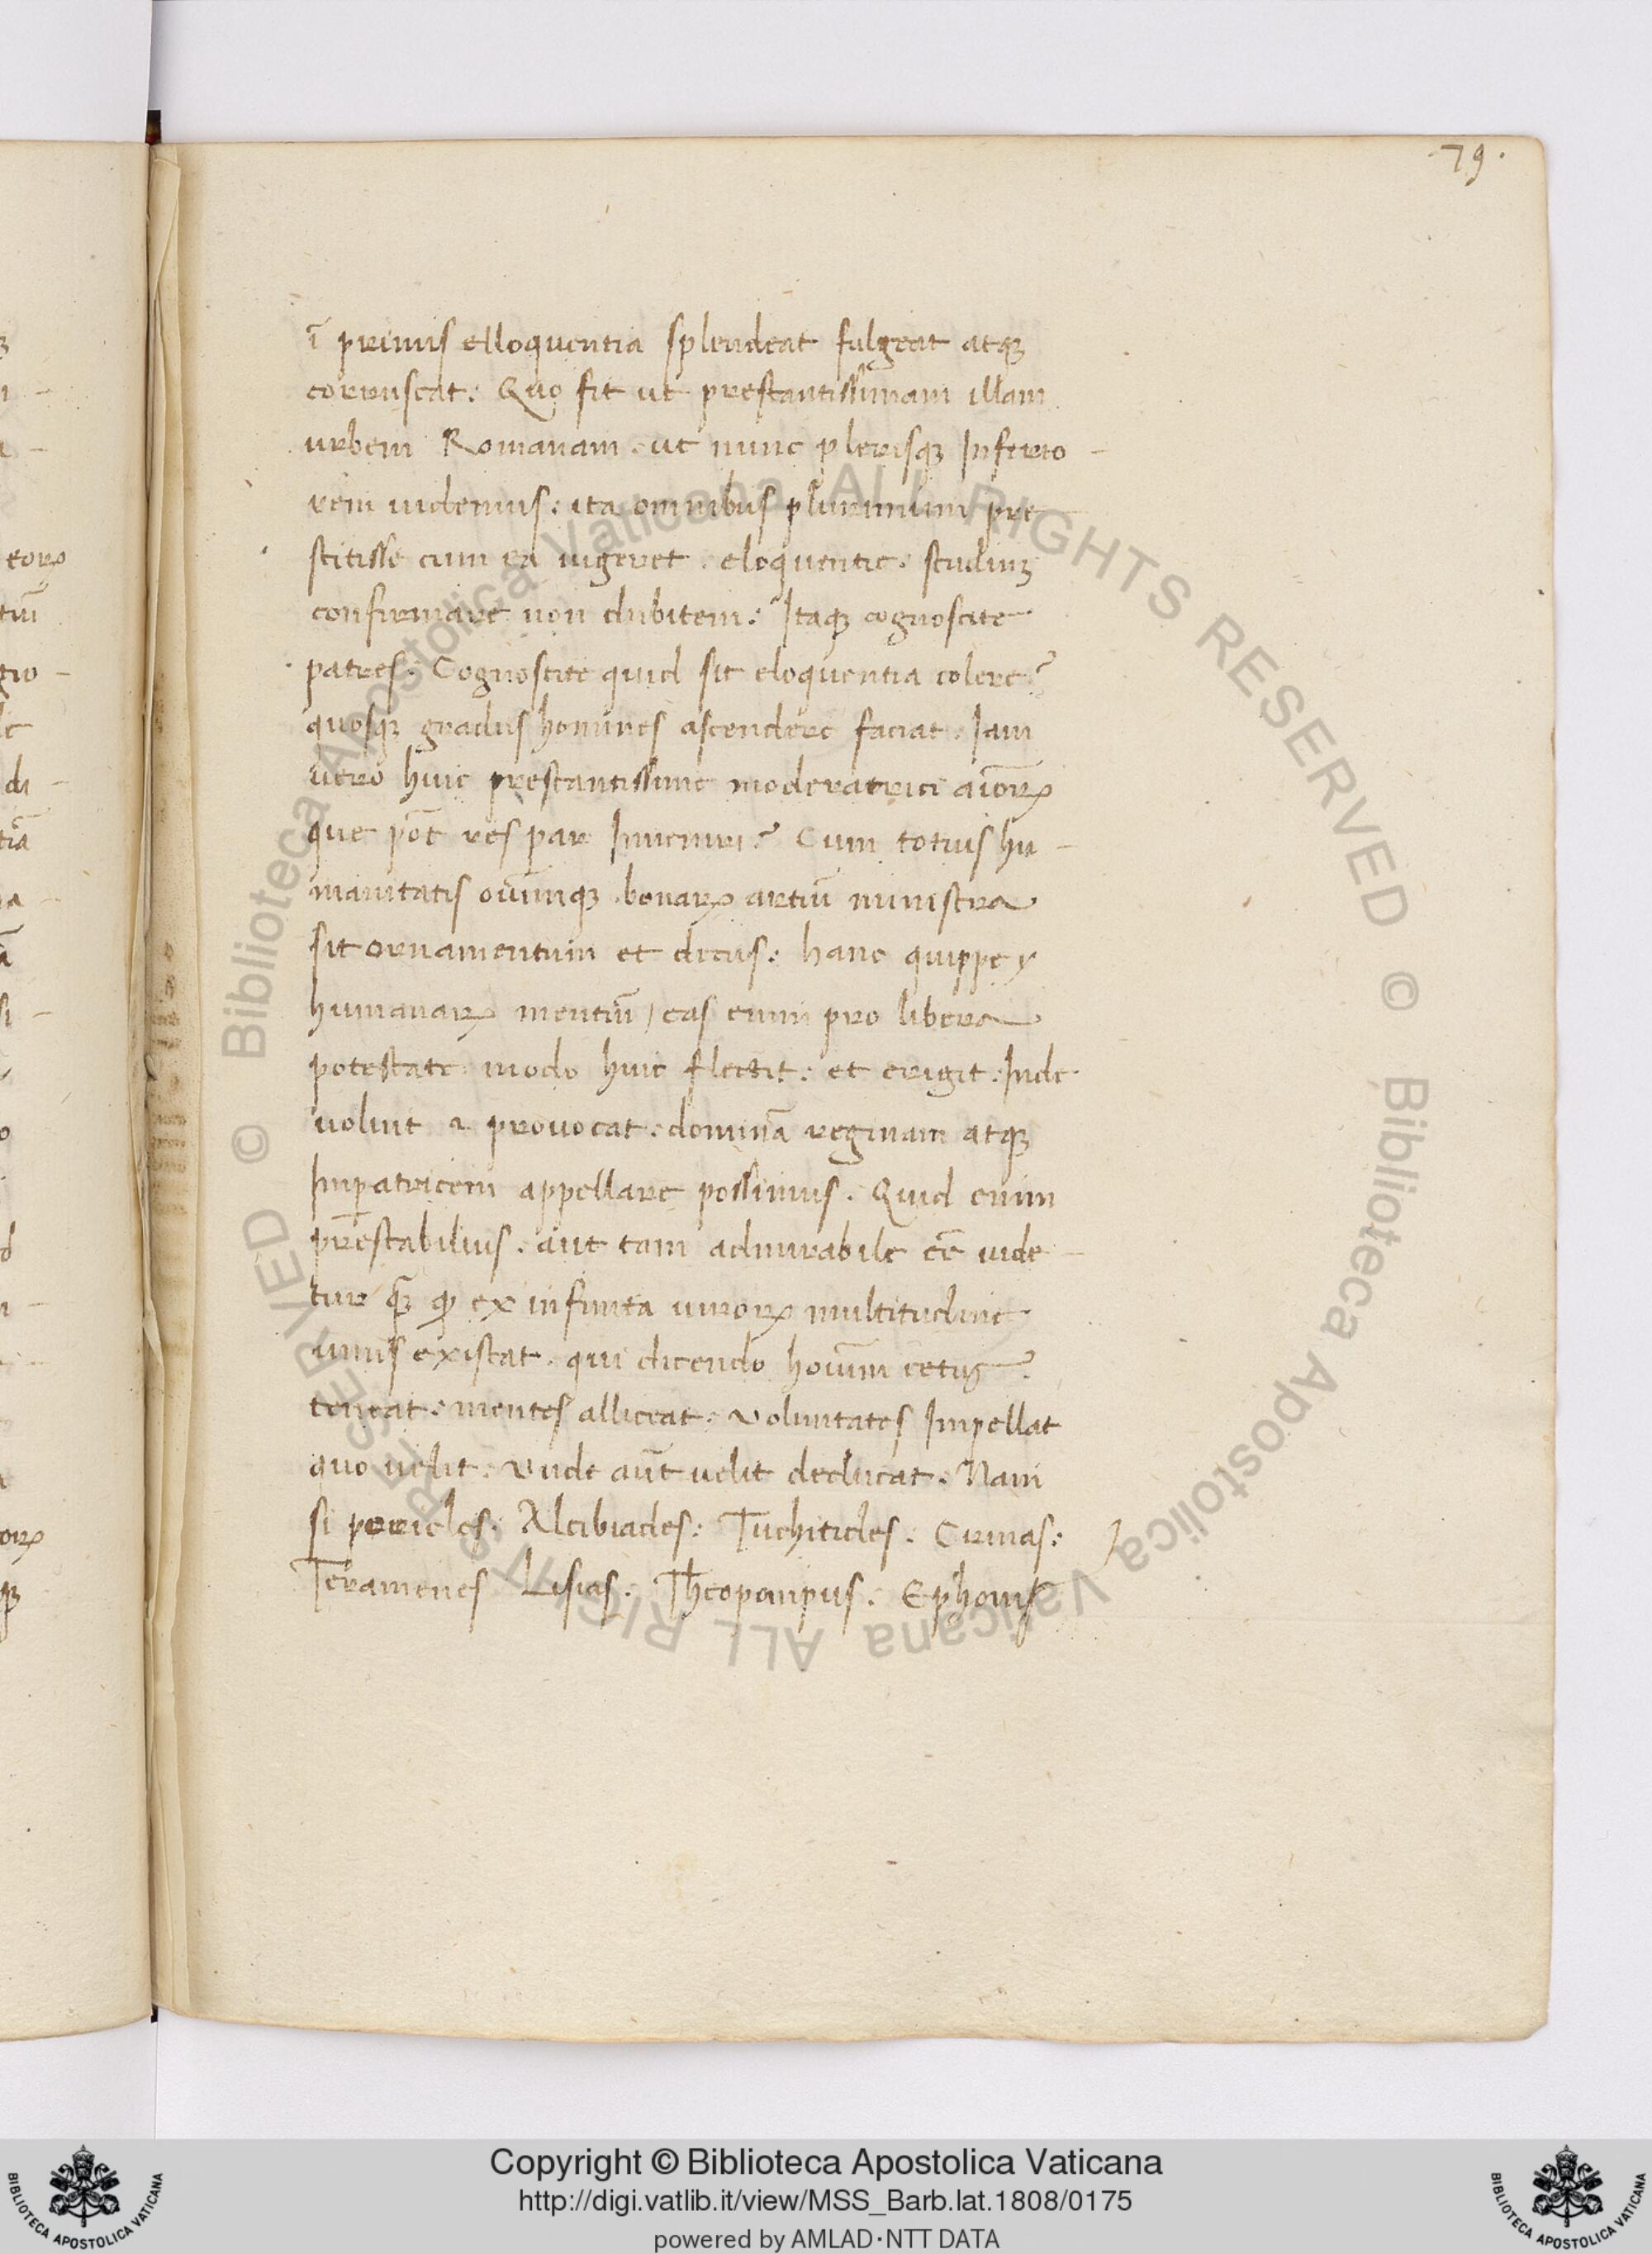 79.
ī primis elloquentia splendeat fulgeat atqꝫ
corruscat: Quo fit ut prestantissimam illam
urbem Romanam. ut nunc plerisqꝫ Inferio-
rem uidemus: ita omnibus plurimum pre
stitisse cum ea uigeret. eloquentie. studiuꝫ
confirmare non dubitem: Itaqꝫ cognoscite
patres. Cognoscite quid sit eloquentia colere?
quosqꝫ gradus homines ascendere faciat. Iam
uero huic prestantissime moderatrici aīorꝝ
que pōt res par Inueniri? Cum totius hu-
manitatis oūmqꝫ bonarꝝ artiū ministra
sit ornamentum et decus: hanc quippe
humanarꝝ mentiū / eas enim pro libera
potestate modo huic flectit: et erigit: Inde
uoluit ⁊ prouocat. dominā reginam atqꝫ
Imꝑatricem appellare possimus. Quid enim
prestabilius. aut tam admirabile eē uide-
tur ex infinita uirorꝝ multitudine
unus existat. qui dicendo hoīum cetus
teneat: mentes alliceat: uoluntates Impellat
quo uelit: unde aūt uelit deducat. Nam
si pericles: Alcibiades: Tuchitides. Cirnas:
Teramenes Lisias. Theopompus. Ephorus
eorꝝ
tiū
gio-
di-
tiā
orꝝ
© Biblioteca Apostolica Vaticana ALL RIGHTS RESERVED © Biblioteca Apostolica Vaticana ALL RIGHTS RESERVED
Copyright © Biblioteca Apostolica Vaticana
http://digi.vatlib.it/view/MSS_Barb.lat.1808/0175
powered by AMLAD·NTT DATA
BIBLIOTECA APOSTOLICA VATICANA
BIBLIOTECA APOSTOLICA VATICANA